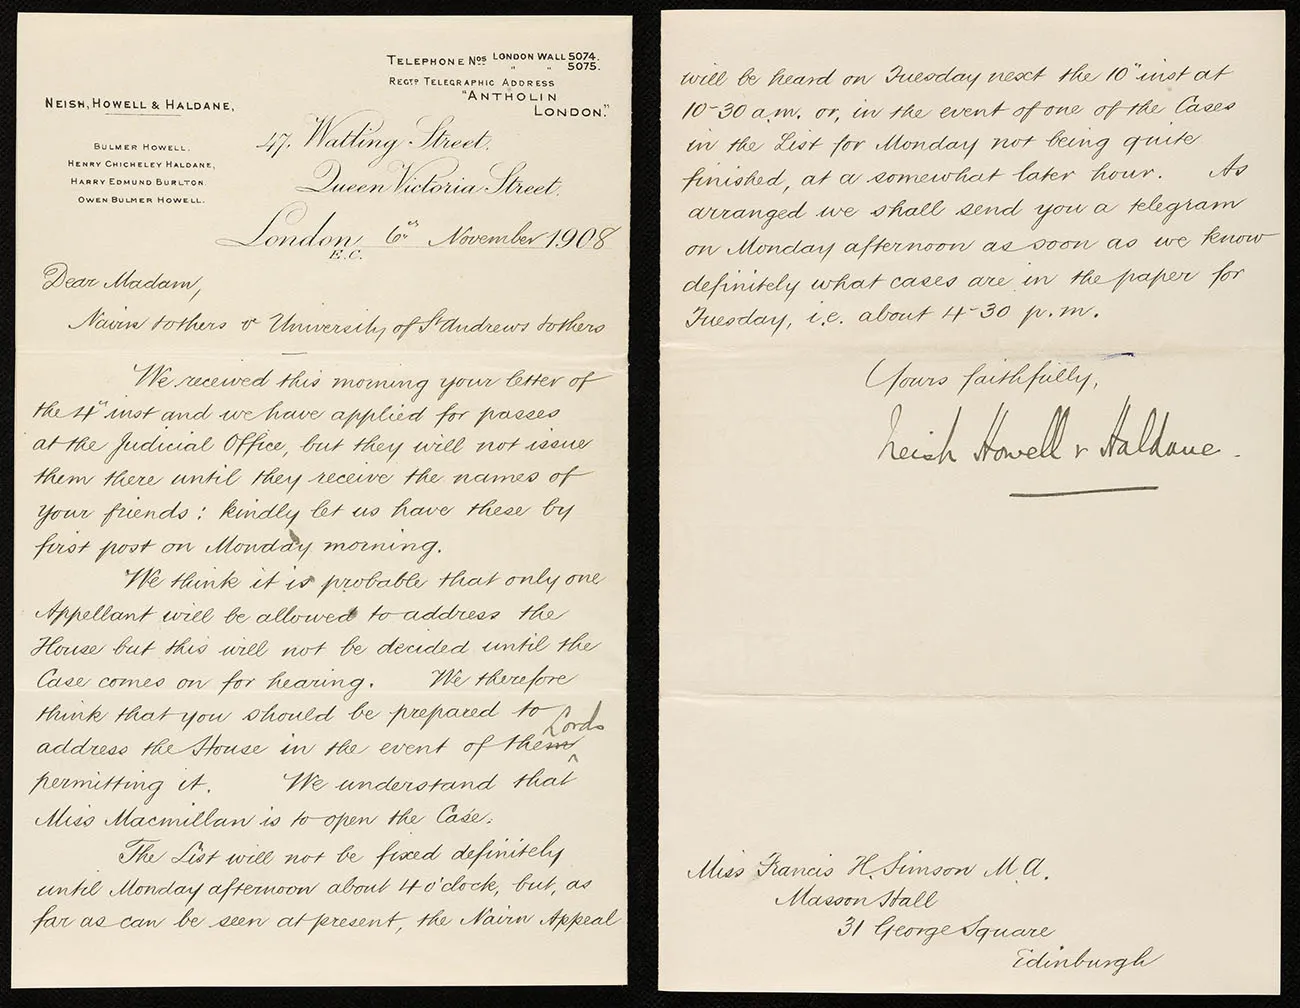 TELEPHONE Nos LONDON WALL 5074.
" " 5075.
REGTD TELEGRAPHIC ADDRESS
"ANTHOLIN
LONDON."
NEISH, HOWELL & HALDANE,
BULMER HOWELL.
HENRY CHICHELEY HALDANE,
HARRY EDMUND BURLTON.
OWEN BULMER HOWELL.
47, Watling Street,
Queen Victoria Street.
London, 6th November 1908
E.C.
Dear Madam,
Nairn & others v University of St Andrews & others
We received this morning your letter of
the 4th inst and we have applied for passes
at the Judicial Office, but they will not issue
them there until they receive the names of
your friends: kindly let us have these by
first post on Monday morning.
We think it is probable that only one
Appellant will be allowed to address the
House but this will not be decided until the
Case comes on for hearing. We therefore
think that you should be prepared to
address the House in the event of them Lords
permitting it. We understand that
Miss Macmillan is to open the Case.
The List will not be fixed definitely
until Monday afternoon about 4 o'clock, but, as
far as can be seen at present, the Nairn Appeal
will be heard on Tuesday next the 10" inst at
10-30 a.m. or, in the event of one of the Cases
in the List for Monday not being quite
finished, at a somewhat later hour. As
arranged we shall send you a telegram
on Monday afternoon as soon as we know
definitely what cases are in the paper for
Tuesday, i.e. about 4-30 p.m.
Yours faithfully,
Neish Howell & Haldane.
Miss Francis H. Simson M.A.
Masson Hall
31 George Square
Edinburgh